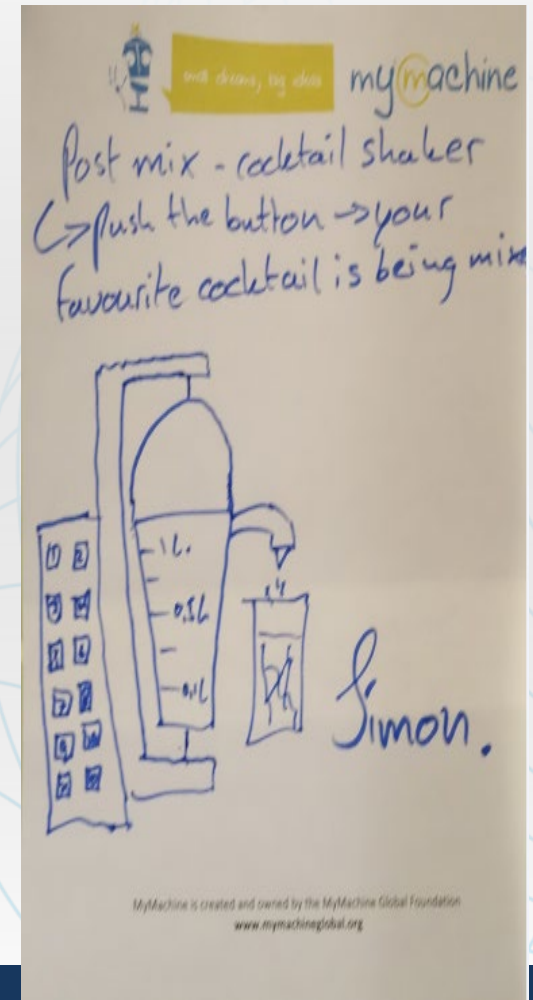 small dreams, big ideas
mymachine
Post mix - cocktail shaker
↳ push the button → your
favourite cocktail is being
1 L.
0,5L
0,1L
1 2
3 4
6
7
9
Simon.
MyMachine is created and owned by the MyMachine Global Foundation
www.mymachineglobal.org